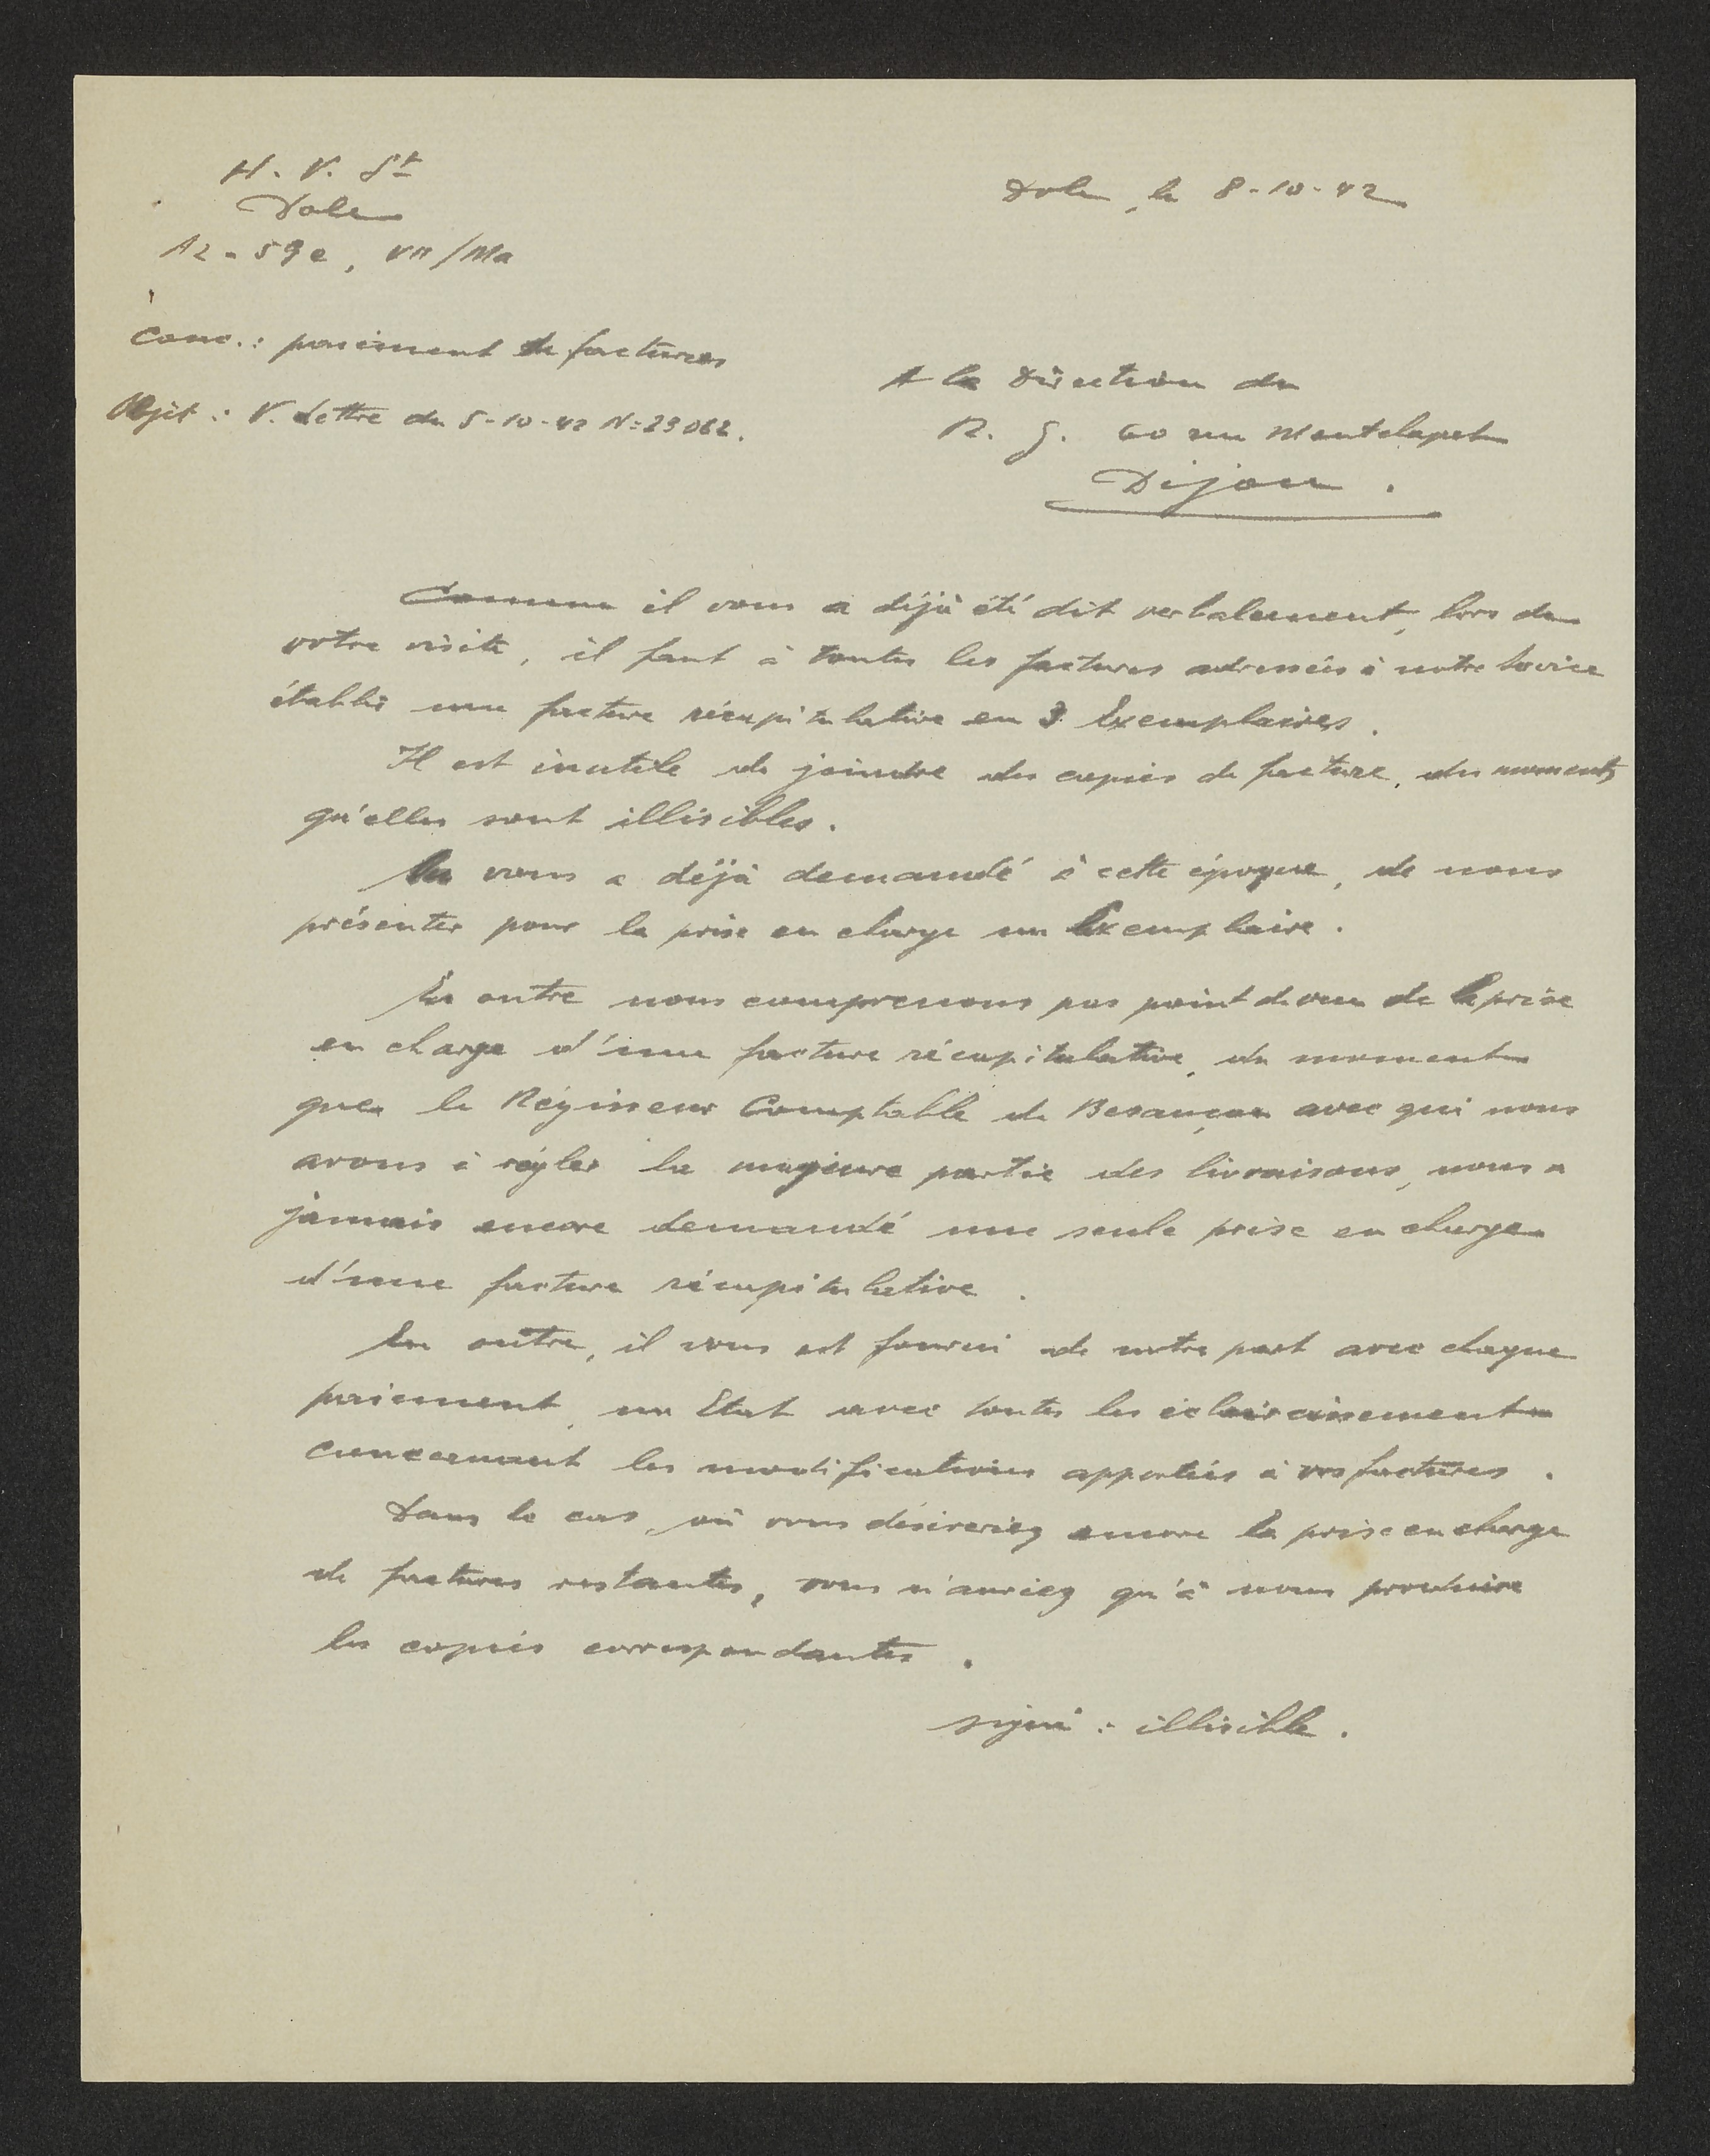 H. V. St
Dole
Az - 59e, VII/Ma
Dole, le 8-10-42
Conc. : paiement de factures
Objet : V. Lettre du 5-10-42 N: 23062.
A la Direction du
R. G. 60 rue Montchapet
Dijon.
Comme il vous a déjà été dit verbalement, lors de
votre visite, il faut à toutes les factures adressées à notre Service
établir une facture récapitulative en 3 Exemplaires.
Il est inutile de joindre des copies de facture, du moment
qu'elles sont illisibles.
On vous a déjà demandé à cette époque, de nous
présenter pour la prise en charge un Exemplaire.
En outre nous comprenons pas point de vue de la prise
en charge d'une facture récapitulative, du moment
que le Régisseur Comptable de Besançon avec qui nous
avons à régler la majeure partie des livraisons, nous a
jamais encore demandé une seule prise en charge
d'une facture récapitulative.
En outre, il vous est fourni de notre part avec chaque
paiement, un Etat avec toutes les éclaircissements
concernant les modifications apportées à vos factures.
Dans le cas, où vous désireriez encore la prise en charge
de factures restantes, vous n'auriez qu'à nous produire
les copies correspondantes.
signé : illisible.